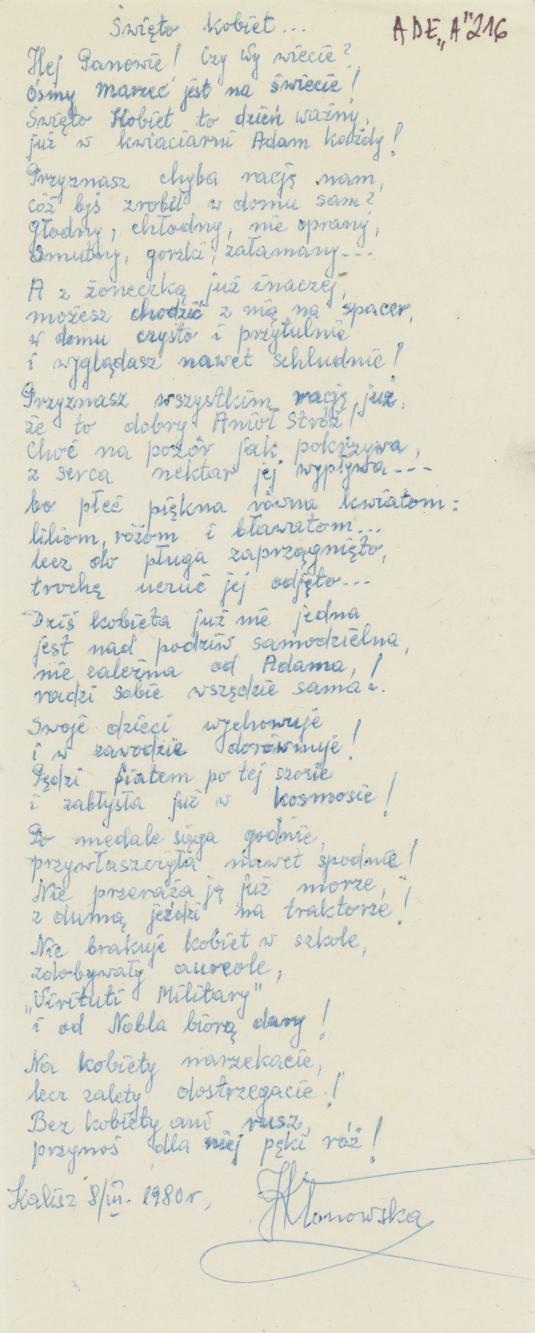 Święto kobiet...
ADE„A"216
Hej Panowie! Czy Wy wiecie?
ósmy marzec jest na świecie!
Święto Kobiet to dzień ważny,
już w kwiaciarni Adam każdy!
Przyznasz chyba rację nam,
cóż byś zrobił w domu sam?
głodny, chłodny, nie oprany,
smutny, gorzki, załamany---
A z żoneczką już inaczej,
możesz chodzić z nią na spacer,
w domu czysto i przytulnie
i wyglądasz nawet schludnie!
Przyznasz wszystkim rację już,
że to dobry Anioł Stróż!
Choć na pozór jak pokrzywa,
z serca nektar jej wypływa---
bo płeć piękna równa kwiatom:
liliom, różom i bławatom...
lecz do pługa zaprzągnięto,
trochę uczuć jej odjęto---
Dziś kobieta już nie jedna
jest nad podziw samodzielna,
nie zależna od Adama,
radzi sobie wszędzie sama!
Swoje dzieci wychowuje
i w zawodzie dorównuje!
Pędzi fiatem po tej szosie
i zabłysła już w kosmosie!
Po medale sięga godnie,
przywłaszczyła nawet spodnie!
Nie przeraża ją już morze,
z dumą jeździ na traktorze!
Nie brakuje kobiet w szkole,
zdobywały aureole,
„Virituti Military"
i od Nobla biorą dary!
Na kobiety narzekacie,
lecz zalety dostrzegacie!
Bez kobiety ani rusz,
przynoś dla niej pęki róż!
Kalisz 8/III. 1980r,
Kłonowska